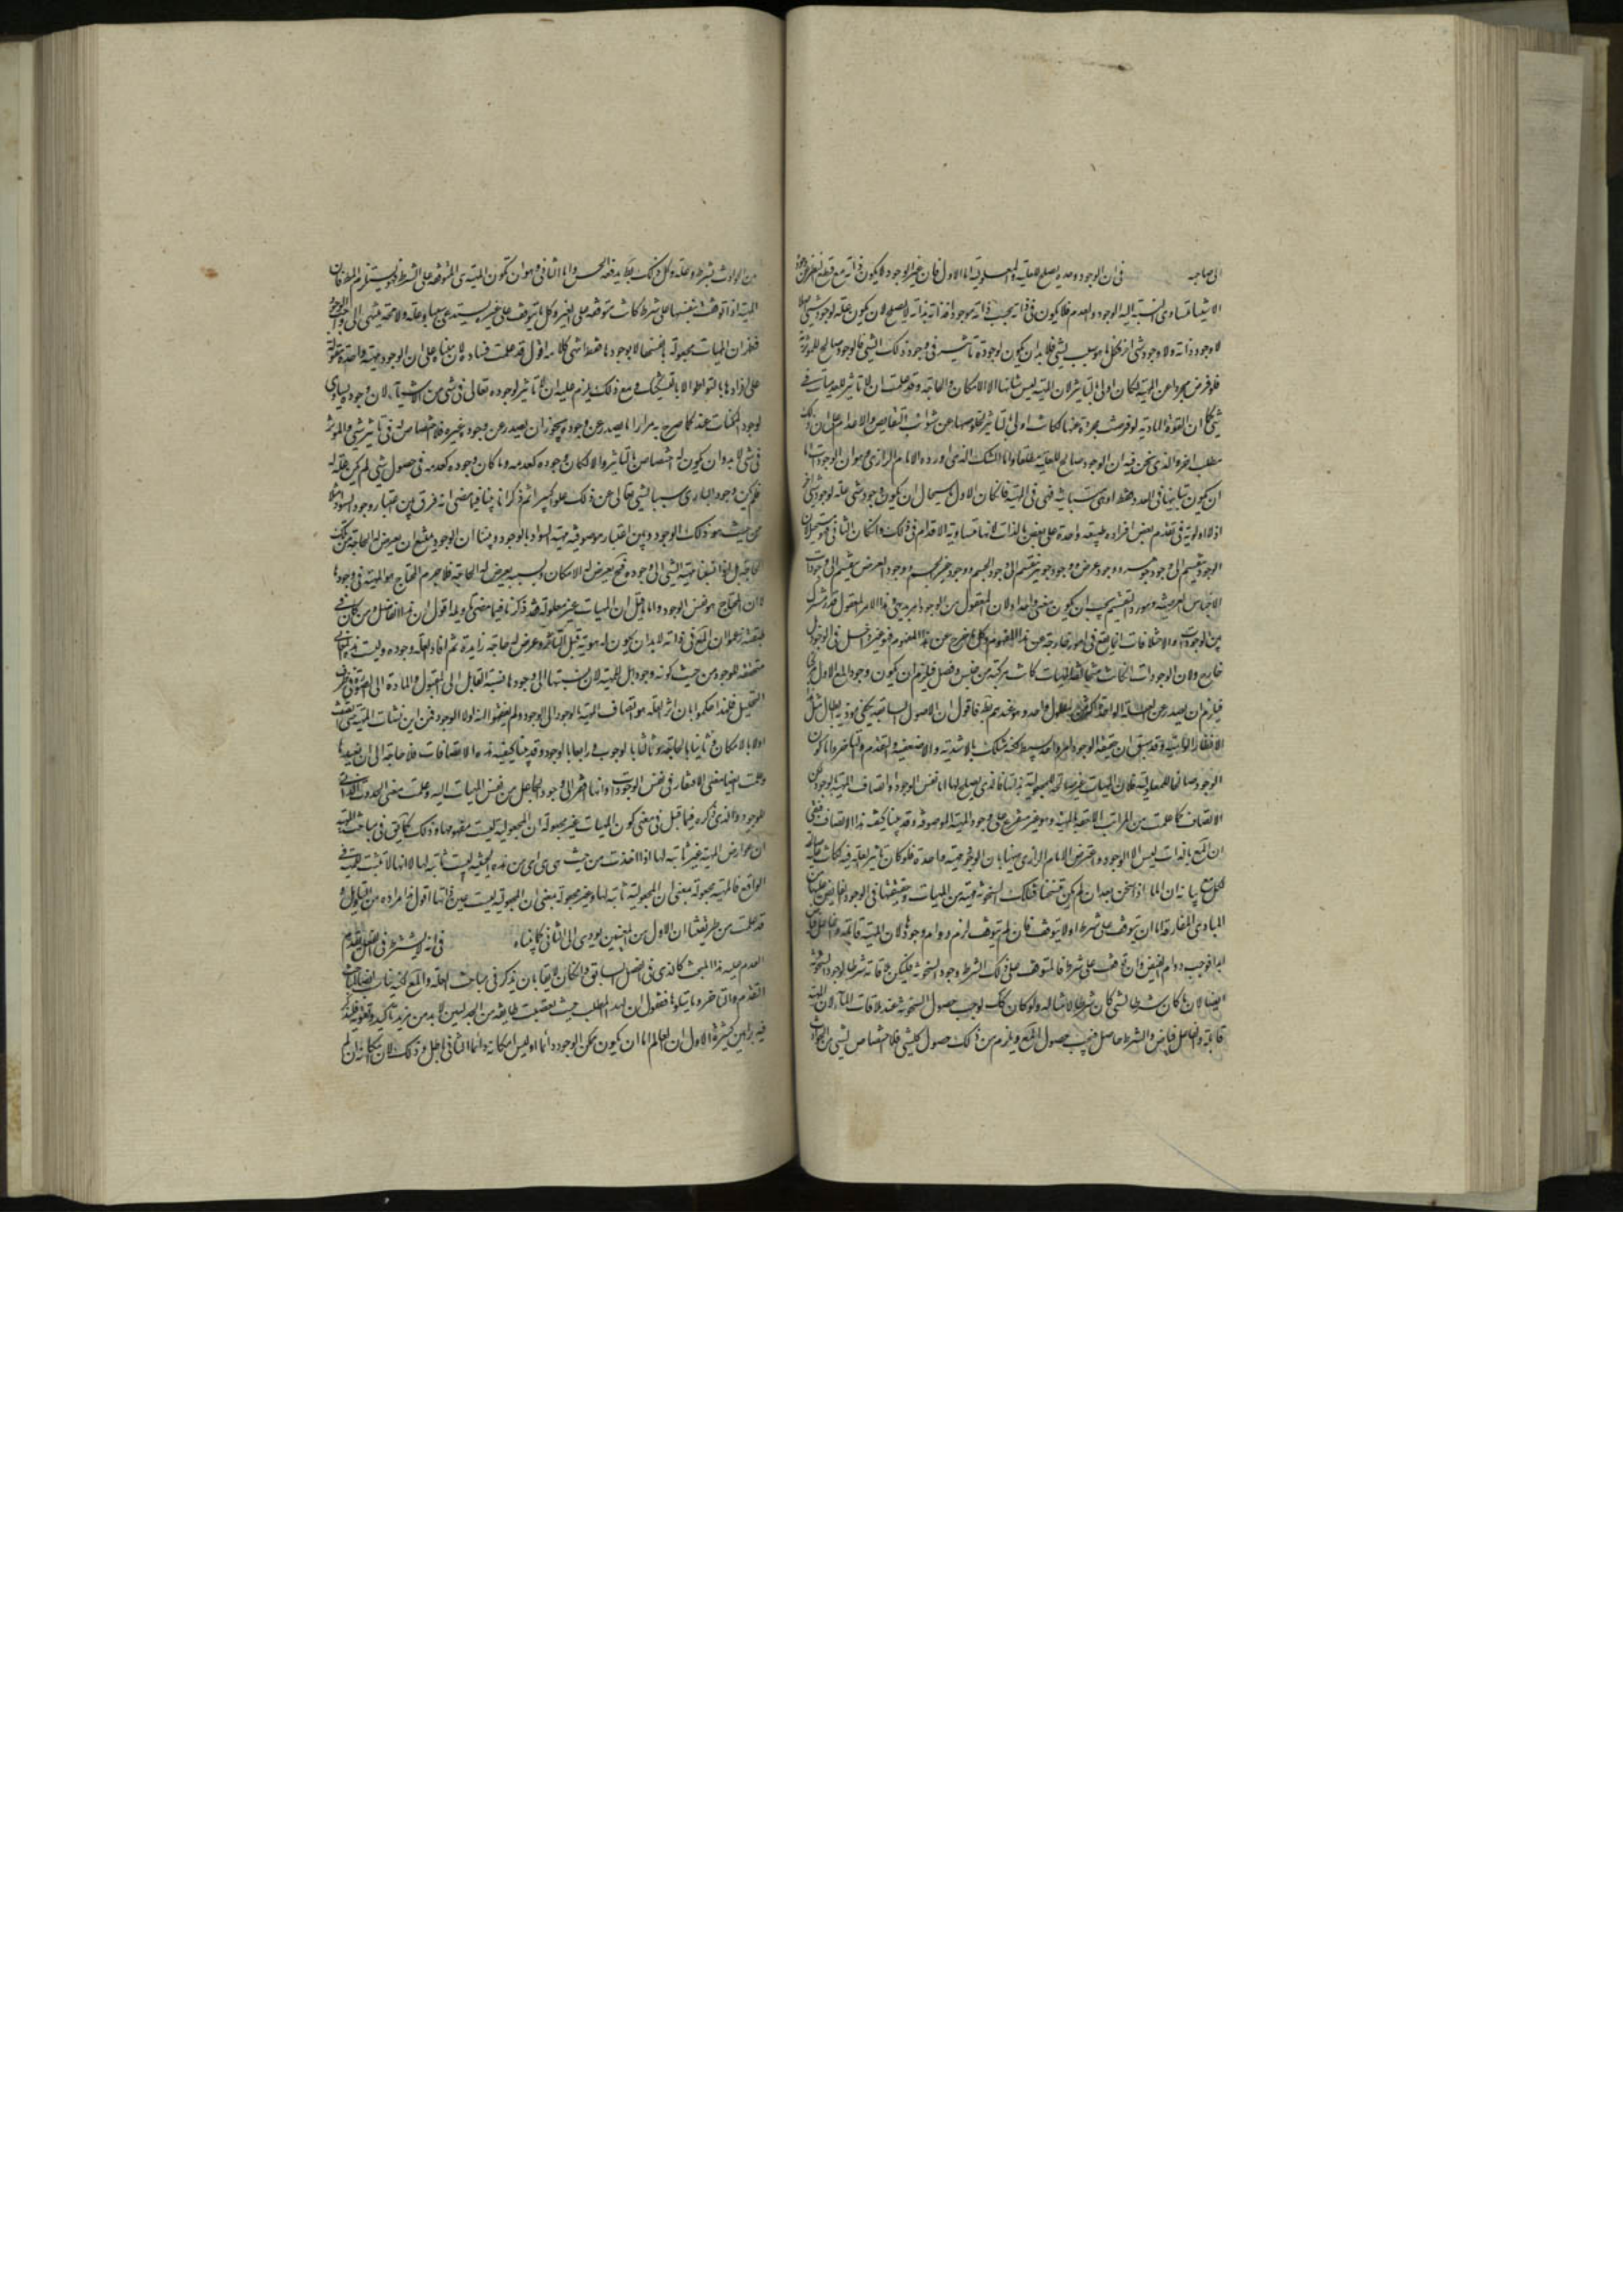 الى صاحبه في ان الوجود وحده يصلح للعلية والمعلولية اما الاول فان غير الوجود لا يكون ذاته مع قطع النظر عن وجوده
الا شيئا متساوى النسبة اليه الوجود والعدم فلا يكون في ذاته بحسب ذاته موجودا فذاته بذاته لا يصلح لان يكون علة لوجود شيء اصلا
لا وجود ذاته ولا وجود شيء اخر فكل ما هو سبب لشيء فلا بد ان يكون لوجوده تاثير في وجود ذلك الشيء فالوجود صالح للموثرية
فلو فرض مجردا عن المهية لكان اولى بالتاثير لان المهية ليس شانها الا الامكان والحاجة وقد علمت ان لا تاثير للعدميات في
شيء كما ان القوة المادية لو فرضت مجردة عنها لكانت اولى بالتاثير لخلوصها عن شوائب النقايص والاعدام على ان ذلك
مطلب اخر والذي نحن فيه ان الوجود صالح للعلية مطلقا واما الشك الذي اورده الامام الرازي وهو ان الوجودات اما
ان يكون تباينها في العدد فقط او هي متباينة في المهية فان كان الاول استحال ان يكون وجود شيء علة لوجود شيء اخر
اذ لا اولوية في تقدم بعض افراد طبيعة واحدة على بعض بالذات لانها متساوية الاقدام في ذلك وان كان الثاني فهو مستحيل لان
الوجود ينقسم الى وجود جوهر ووجود عرض ووجود جوهر ينقسم الى وجود الجسم ووجود غير الجسم ووجود العرض ينقسم الى وجودات
الاجناس العرضية ومورد التقسيم يجب ان يكون معنى واحدا ولان المعقول من الوجود امر بديهي وهذا الامر المعقول قدر مشترك
بين الوجودات والاختلافات انما يقع في امور خارجة عن هذا المفهوم وكل ما خرج عن هذا المفهوم فهو غير داخل في الوجود بل
خارج ولان الوجودات ان كانت متخالفة المهيات كانت مركبة من جنس وفصل فيلزم ان يكون وجود المعلول الاول مركبا
فيلزم ان يصدر عن العلة الواحدة اكثر من معلول واحد وهو عندهم بط فاقول ان الاصول السابقة يكفي مؤنة ابطال مثل هذه
الانظار الواهية وقد سبق ان حقيقة الوجود امر واحد بسيط لكنه متشكك بالاشدية والاضعفية والتقدم والتاخر واما كون
الوجود صالحا للمعلولية فلان المهيات غير صالحة للمجعولية بذاتها فالذي يصلح لها اما نفس الوجود او اتصاف المهية بالوجود لكن
الاتصاف كما علمت من المراتب اللاحقة بالمهية وهو غير متفرع على وجود المهية الموصوفة وقد بينا كيفية هذا الاتصاف فبقي
ان المجعول بالذات ليس الا الوجود واعترض الامام الرازي ههنا بان الوجود مهية واحدة فلو كان تاثير العلة فيه لكانت علة صالحة
لكل معلول بيانه ان الماء اذا سخن بعد ان لم يكن متسخنا فتلك السخونة مهية من المهيات وحقيقتها في الوجود الفايض عليها من
المبادي المفارقة اما ان يتوقف على شرط او لا يتوقف فان لم يتوقف لزم دوام وجودها لان المهية قابلة والفاعل فياض
ابدا فوجب دوام الفيض وان توقف على شرط فالمتوقف على ذلك الشرط وجود السخونة فليكن ملاقاته شرطا لوجود السخونة
ايضا لان ما كان شرطا لشيء كان شرطا لامثاله ولو كان كك لوجب حصول السخونة عند ملاقات الماء لان المهية
قابلة والفاعل فياض والشرط حاصل فيجب حصول المعلول ويلزم من ذلك حصول كل شيء فلا اختصاص لشيء من الحوادث
من الحوادث بشرط وعلة وكل ذلك بط يدفعه الحس واما الثاني وهو ان تكون المهية هي المتوقفة على الشرط فهو يستلزم المط فان
المهية اذا توقفت بنفسها على شرط كانت متوقفة على الغير وكل ما يتوقف على غير يستدعي سببا وعلة ولا محة ينتهي الى واجب الوجود
فظهر ان المهيات مجعولة بانفسها لا بوجودها فقط انتهى كلامه اقول قد علمت فساده لان مبناه على ان الوجود مهية واحدة مقولة
على افرادها بالتواطؤ لا بالتشكيك ومع ذلك يلزم عليه ان لا تاثير لوجوده تعالى في شيء من الاشياء لان وجوده يساوي
لوجود الممكنات عنده كما صرح به مرارا فما يصدر عن وجوده يجوز ان يصدر عن وجود غيره فلا اختصاص له في تاثير شيء والموثر
في شيء لا بد وان يكون له اختصاص بالتاثير والا لكان وجوده كعدمه وما كان وجوده كعدمه في حصول شيء لم يكن علة له
فلم يكن وجود الباري سببا لشيء تعالى عن ذلك علوا كبيرا ثم ذكر انا بينا فيما مضى انه فرق بين اعتبار وجود السواد مثلا
من حيث هو ذلك الوجود وبين اعتبار موصوفية مهية السواد بالوجود وبينا ان الوجود ممتنع ان يعرض له الحاجة من تلك
الحاجة بل اذا اعتبرنا مهية الشيء الى وجوده فح يعرض له الامكان وبسببه يعرض له الحاجة فلا جرم المحتاج هو المهية في وجودها
لا ان المحتاج هو نفس الوجود واما ما قيل ان المهيات غير معلولة فقد ذكرنا فيما مضى تاويله اقول ان هذا الفاضل ومن كان في
طبقته زعموا ان المعلول في ذاته لا بد ان يكون له هوية قبل التاثير وعرض له حاجة زايدة ثم افاد العلة وجوده وليت هذه المعاني
متحققة للموجود من حيث كونه وجودا بل للمهية لان نسبتها الى وجودها نسبة القابل الى المقبول والمادة الى الصورة في ظرف
التحليل فلهذا حكموا بان اثر العلة هو اتصاف المهية بالوجود لا الوجود ولم يتفطنوا انه لولا الوجود فمن اين نشات المهية حتى اتصفت
اولا بالامكان وثانيا بالحاجة وثالثا بالوجوب ورابعا بالوجود وقد بينا كيفية هذه الاتصافات فلا حاجة الى ان نعيدها
وعلمت ايضا معنى الافتقار في نفس الوجودات وانها افقر الى وجود الجاعل من نفس المهيات اليه وعلمت معنى الحدوث الذاتي
للوجود والذي ذكره فيما قبل في معنى كون المهيات غير مجعولة ان المجعولية ليست مفهومها وذلك كما يق في مباحث المهية
ان عوارض المهية غير ثابتة لها اذا اخذت من حيث هي هي اي من هذه الحيثية ليست ثابتة لها لا انها لا تثبت لها في
الواقع فالمهية مجعولة بمعنى ان المجعولية ثابتة لها وغير مجعولة بمعنى ان المجعولية ليست عين ذاتها اقول هذا مراده من التاويل و
قد علمت من طريقتنا ان الاول من المعنيين يؤدي الى الثاني كما بيناه في انه لا يشترط في الفعل تقدم
العدم عليه هذا المبحث كالذي في الفصل السابق وان كان لايقا بان يذكر في مباحث العلة والمعلول لكنه يناسب ايضا لمباحث
التقدم والتاخر وما يتلوها فنقول ان لهذا المطلب حيث تعصبت طايفة من الجدليين لا بد من مزيد تاكيد وتقوية فلنذكر
فيه براهين كثيرة الاول ان العالم اما ان يكون ممكن الوجود دائما او ليس امكانه دائما الثاني باطل وذلك لان امكانه ان لم